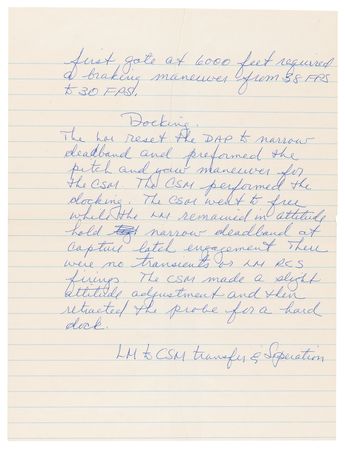 first gate at 6000 feet required
a braking maneuver from 38 FPS
to 30 FPS.
Docking.
The LM reset the DAP to narrow
deadband and preformed the
pitch and yaw maneuver for
the CSM. The CSM performed the
docking. The CSM went to free
while the LM remained in attitude
hold narrow deadband at
capture latch engagement There
were no transients or LM RCS
firings The CSM made a slight
attitude adjustment and then
retracted the probe for a hard
dock.
LM to CSM transfer & Seperation